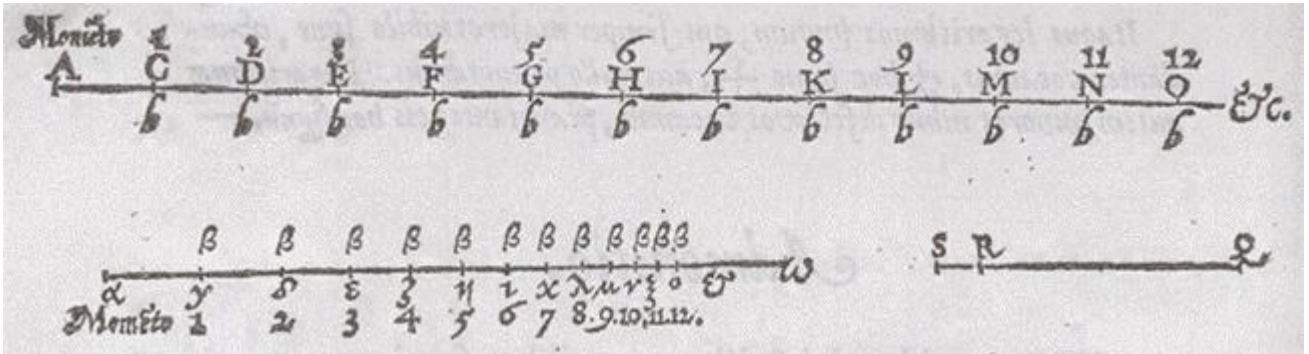 Momẽto 1 2 3 4 5 6 7 8 9 10 11 12
A C D E F G H I K L M N O &c.
b b b b b b b b b b b b
β β β β β β β β β β β β
α γ δ ε ζ η ι κ λ μ ν ξ ο & ω
Momẽto 1 2 3 4 5 6 7 8.9.10.11.12.
S R Q